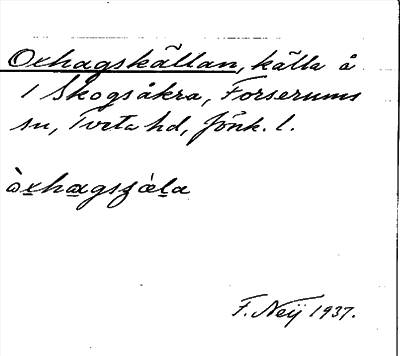 Oxhagskällan, källa å
1 Skogsåkra, Forserums
sn, Tveta hd, Jönk. l.
òxhagsʒæ̀la
F. Neij 1937.